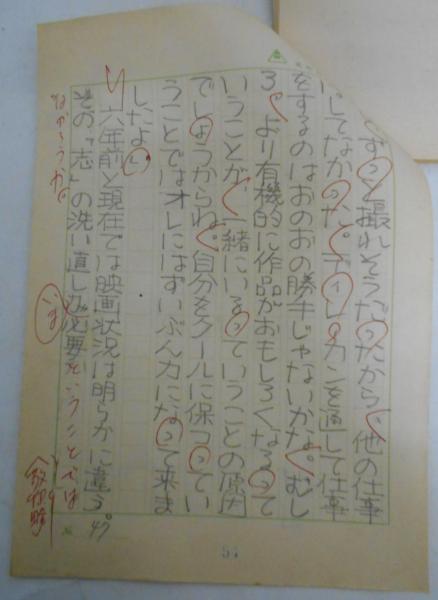 ずっと撮れそうだったから、他の仕事
してなかった。ディレカンを通して仕事
をするのはおのおの勝手じゃないかな。むし
ろ、より有機的に作品がおもしろくなるって
いうことが、一緒にいるっていうことの原因
でしょうからね。自分をクールに保つってい
うことではオレにはずいぶん力になって来ま
したよ。
六年前と現在では映画状況は明らかに違う。
その「志」の洗い直しが必要ということでは
ないろうか。
51